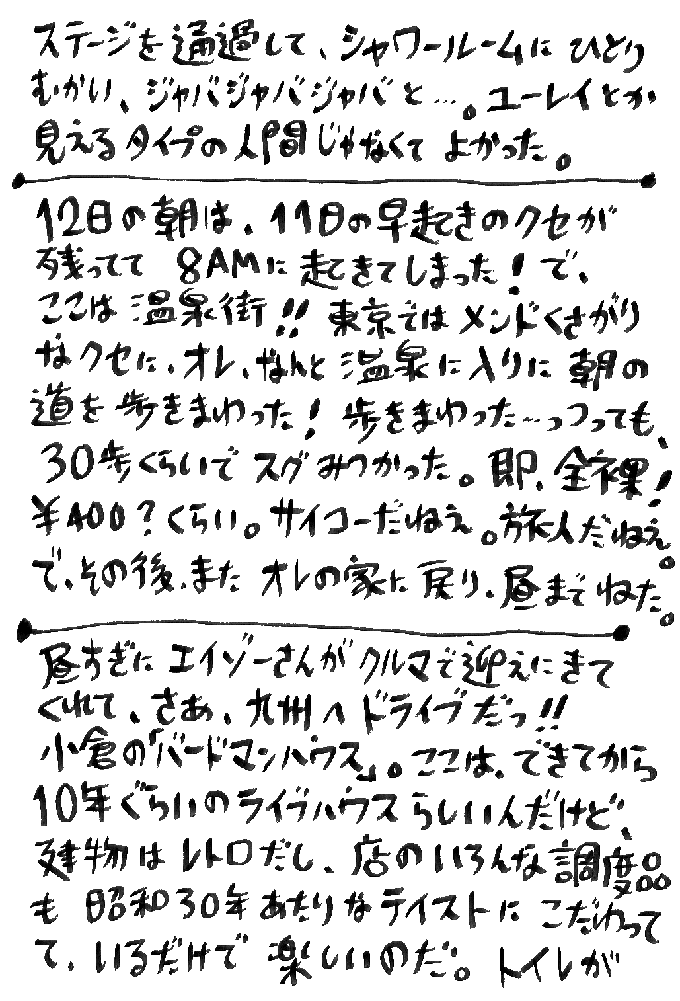 ステージを通過して、シャワールームにひとり
むかい、ジャバジャバジャバと…。ユーレイとか
見えるタイプの人間じゃなくてよかった。
12日の朝は、11日の早起きのクセが
残ってて 8AMに起きてしまった!で、
ここは温泉街!!東京ではメンドくさがり
なクセに、オレ、なんと温泉に入りに朝の
道を歩きまわった!歩きまわった…っつっても、
30歩くらいでスグみつかった。即、全裸!
¥400?くらい。サイコーだねえ。旅人だねえ。
で、その後、またオレの家に戻り、昼までねた。
昼すぎにエイゾーさんがクルマで迎えにきて
くれて、さあ、九州へドライブだっ!!
小倉の「バードマンハウス」。ここは、できてから
10年ぐらいのライブハウスらしいんだけど、
建物はレトロだし、店のいろんな調度品
も昭和30年あたりなテイストにこだわって
て、いるだけで楽しいのだ。トイレが